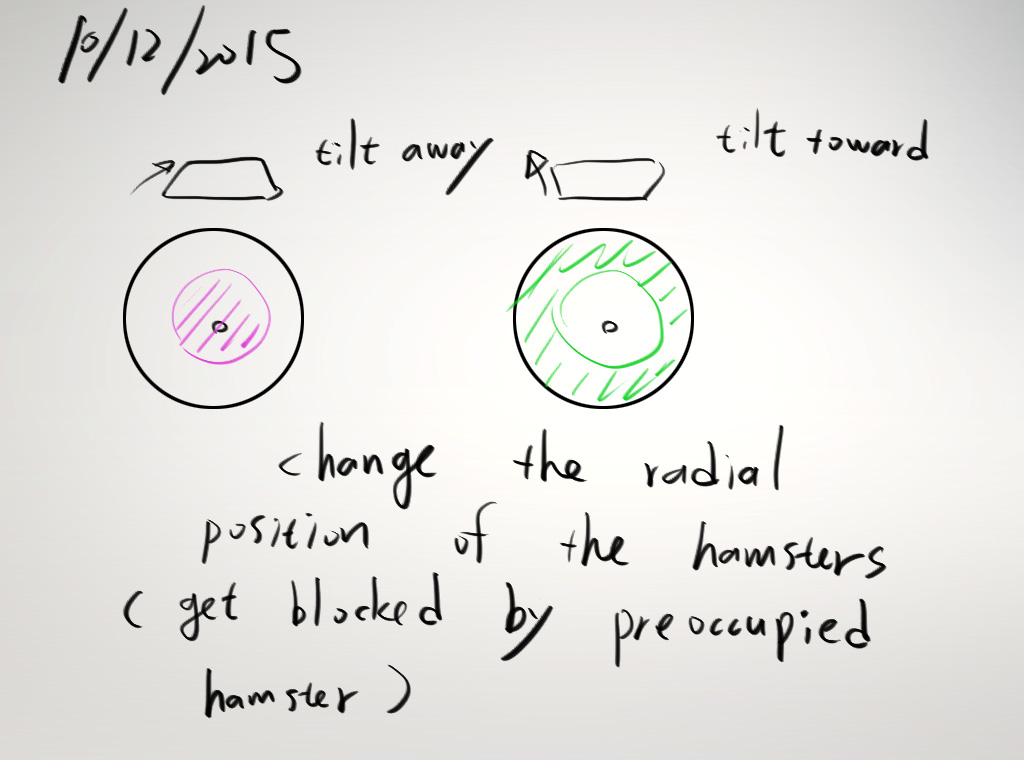 10/12/2015
tilt away
tilt toward
change the radial
position of the hamsters
( get blocked by preoccupied
hamster )